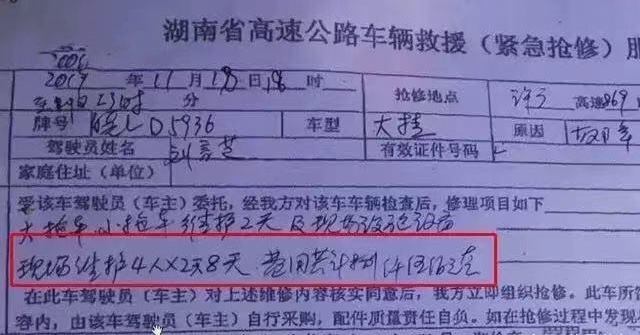 湖南省高速公路车辆救援（紧急抢修）服
2019 年 11 月 18 日 18 时
分
抢修地点 高速869
牌号 皖L D5936 车型 大挂 原因 故障
驾驶员姓名 刘 有效证件号码
家庭住址（单位）
受该车驾驶员（车主）委托，经我方对该车车辆检查后，修理项目如下
大拖车 小拖车 维护2天 及现场设施设备
现场维护4人×2天8天 费用共计捌仟伍佰元
在此车驾驶员（车主）对上述维修内容核实同意后，我方立即组织抢修。此车所
容内，由该车驾驶员（车主）自行采购，配件质量责任自负。如在抢修过程中发现